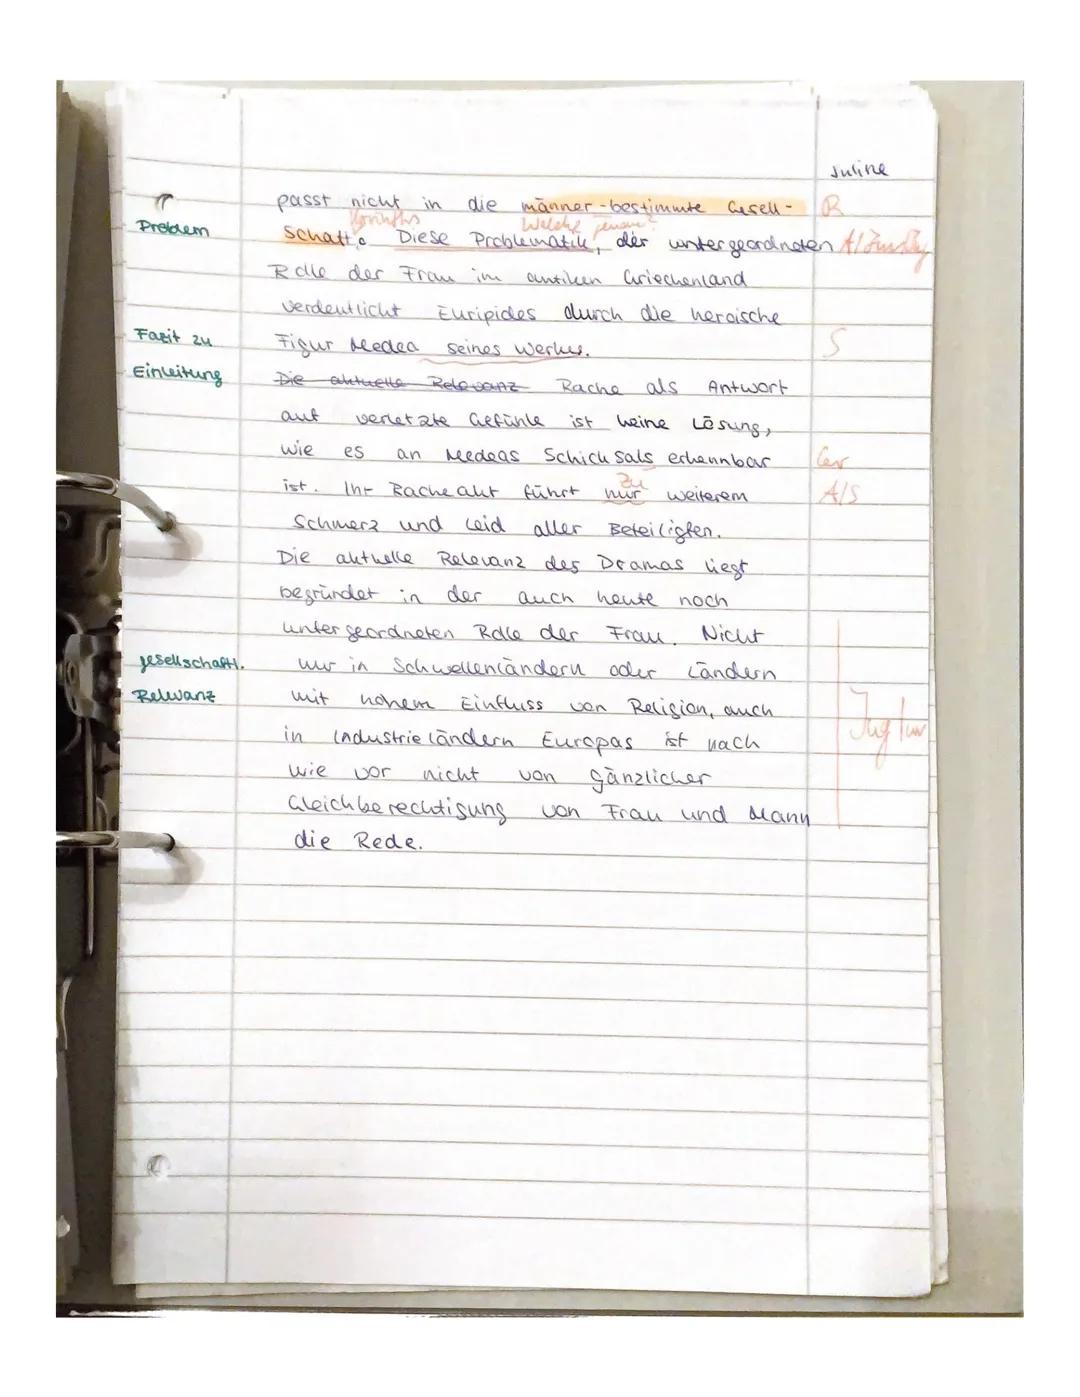 Juline
passt nicht in die männer-bestimmte Gesell- R
Korinths Welche genau?
Problem schaft. Diese Problematik, der untergeordneten A/
Rolle der Frau im antiken Griechenland
verdeutlicht Euripides durch die heroische
Fazit zu Figur Medea seines Werkes. S
Einleitung Die aktuelle Relevanz Rache als Antwort
auf verletzte Gefühle ist keine Lösung,
wie es an Medeas Schicksals erkennbar
zu
ist. Ihr Racheakt führt nur weiterem A/S
Schmerz und Leid aller Beteiligten.
Die aktuelle Relevanz des Dramas liegt
begründet in der auch heute noch
untergeordneten Rolle der Frau. Nicht
gesellschaftl. nur in Schwellenländern oder Ländern
Relevanz mit hohem Einfluss von Religion, auch
in Industrieländern Europas ist nach
wie vor nicht von gänzlicher
Gleichberechtigung von Frau und Mann
die Rede.